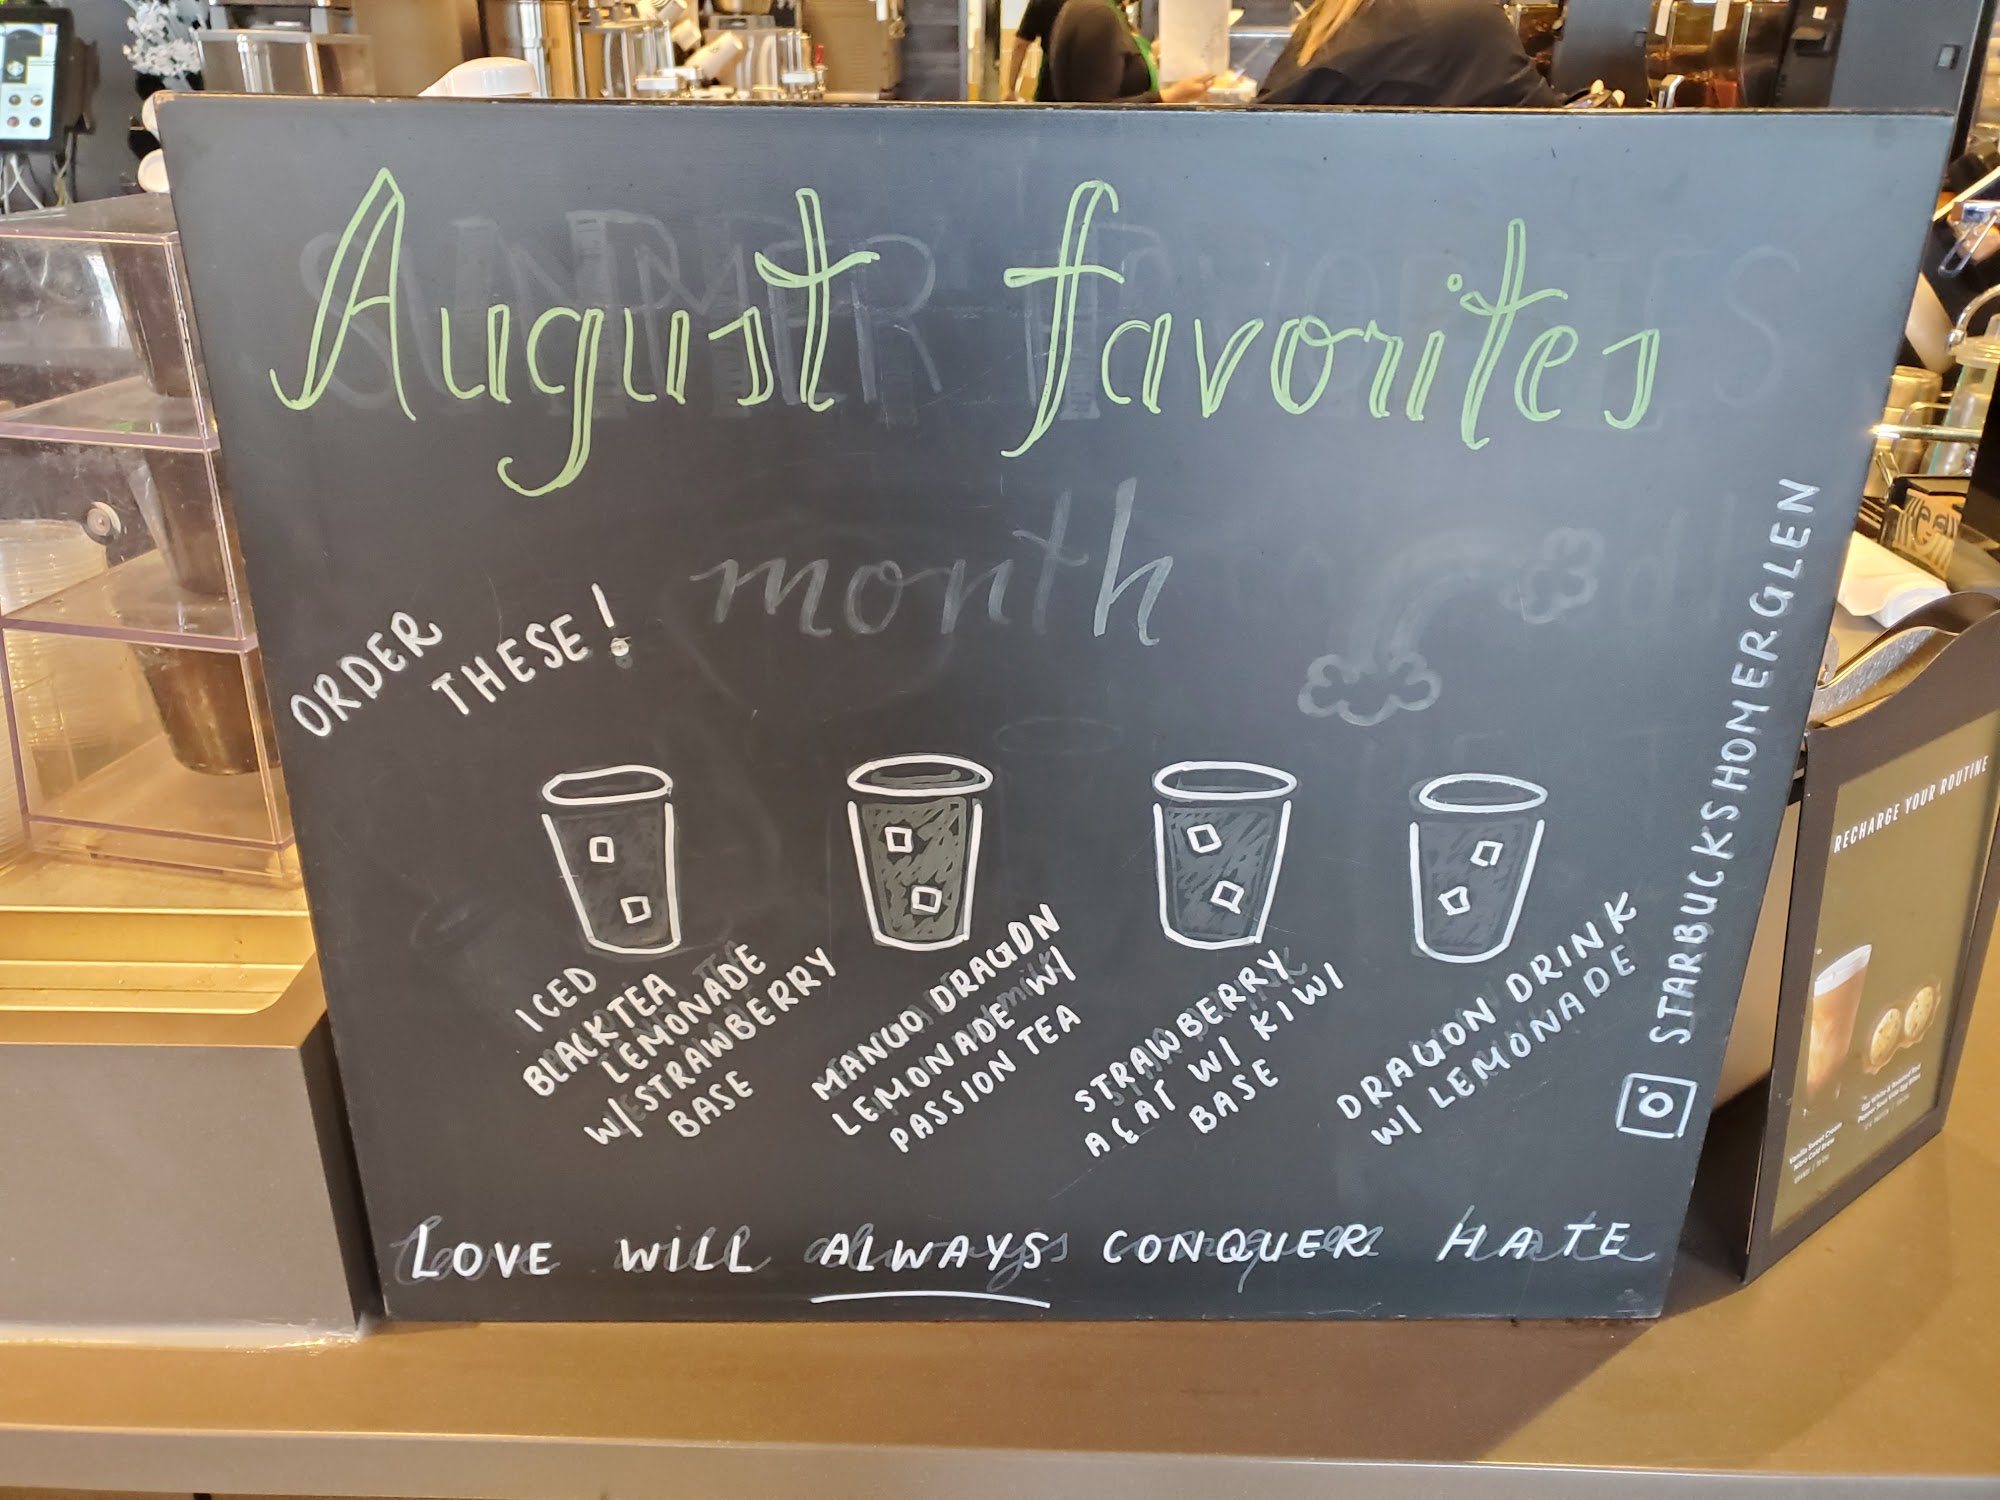 August favorites
month
ORDER
THESE!
ICED
BLACKTEA
LEMONADE
W/STRAWBERRY
BASE
MANGO DRAGON
LEMONADE W/
PASSION TEA
STRAWBERRY
AÇAI W/ KIWI
BASE
DRAGON DRINK
W/ LEMONADE
STARBUCKSHOMERGLEN
LOVE WILL ALWAYS CONQUER HATE
RECHARGE YOUR ROUTINE
Vanilla Sweet Cream
Nitro Cold Brew